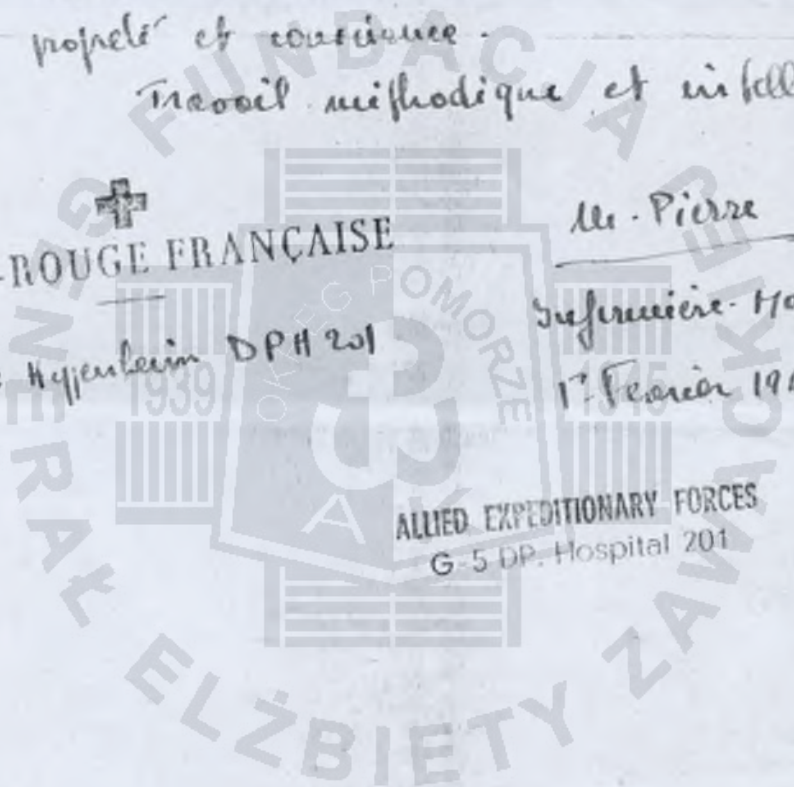 propreté et conscience.
Travail méthodique et
-ROUGE FRANÇAISE
M. Pierre
DPH 201
Infirmière-
1er Février
ALLIED EXPEDITIONARY FORCES
G-5 DP. Hospital 201
FUNDACJA GENERAŁ ELŻBIETY ZAWACKIEJ
OKRĘG POMORZE
1939
1945
AK